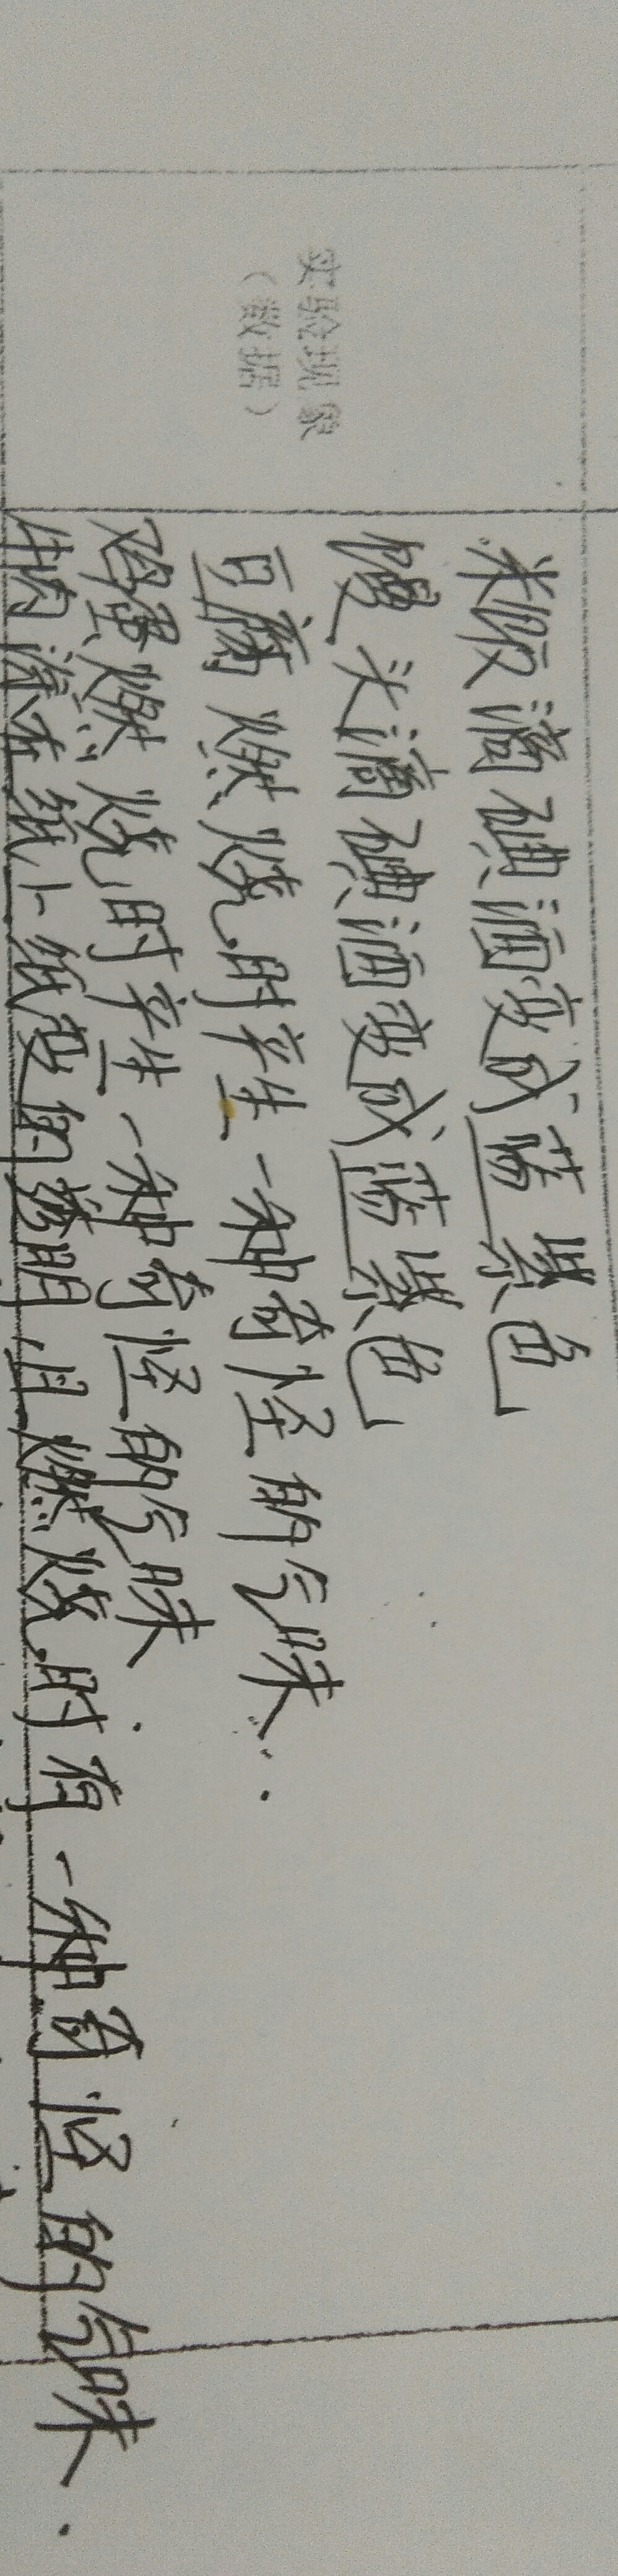 实验现象
（数据）
米饭滴碘酒变成蓝紫色
馒头滴碘酒变成蓝紫色
豆腐燃烧时产生一种奇怪的气味.
鸡蛋燃烧时产生一种奇怪的气味.
肉滴在纸上纸变的透明,且燃烧时有一种奇怪的气味.